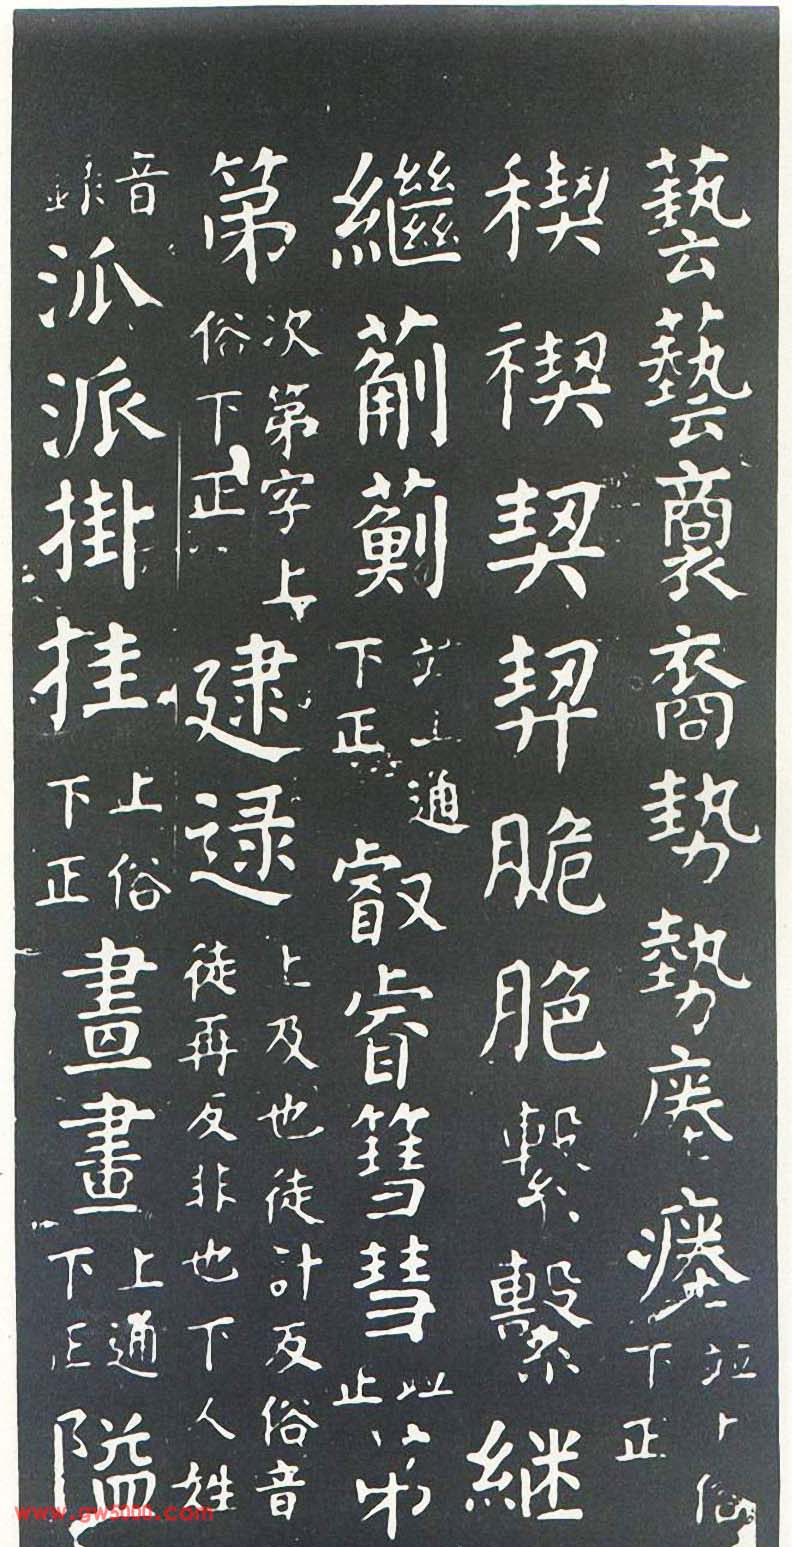 藝藝裔裔勢勢瘞瘞並上俗下正
稧禊契契脆脃繫繫継
繼葪薊並上通下正叡睿篲彗並正弟
第次第字上俗下正逮逯上及也徒計反俗音徒再反非也下人姓
音錄泒派掛挂上俗下正畫畫上通下正隘
www.gw5000.com